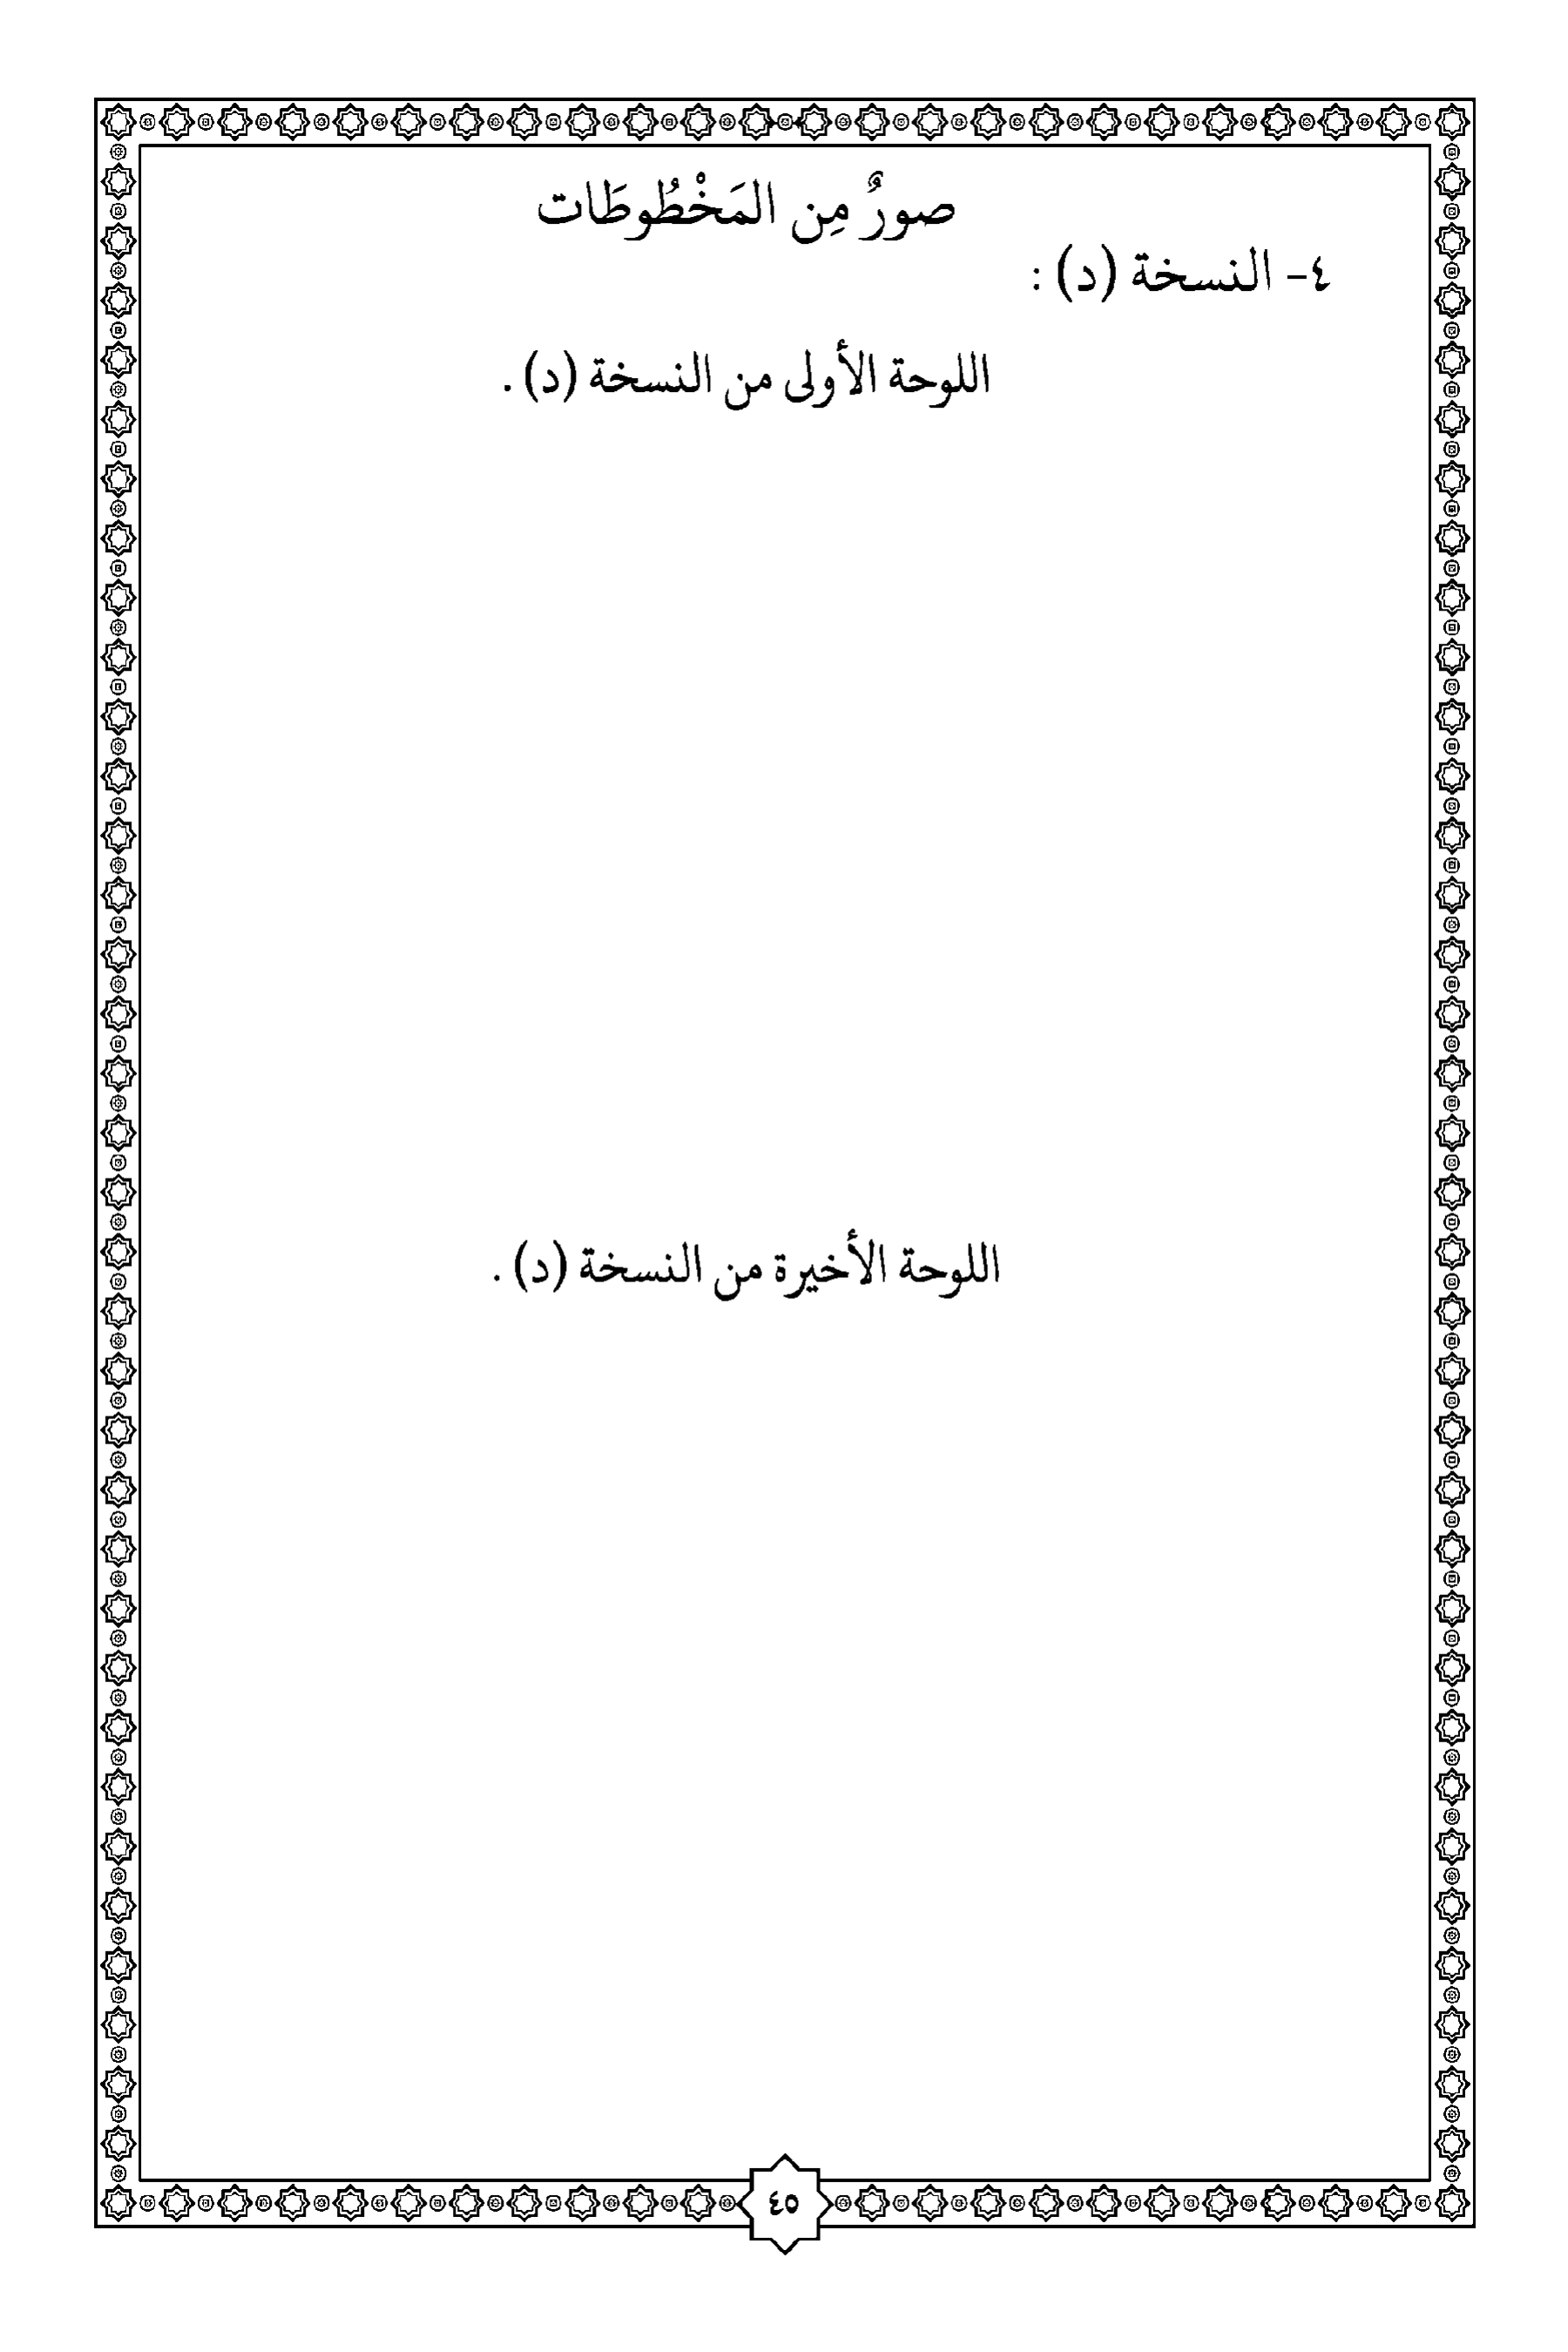 صورٌ مِن المَخْطُوطَات
٤- النسخة (د) :
اللوحة الأولى من النسخة (د) .
اللوحة الأخيرة من النسخة (د) .
٤٥